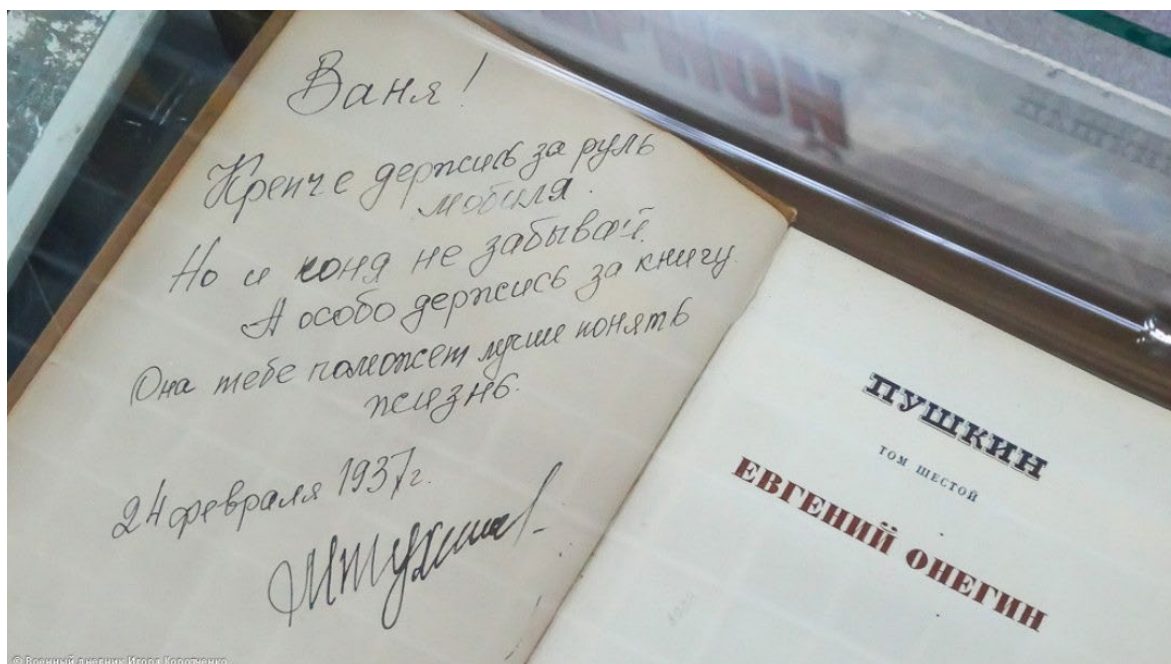 Ваня!
Крепче держись за руль
мобиля.
Но и коня не забывай.
А особо держись за книгу.
Она тебе поможет лучше понять
жизнь.
24 февраля 1937г.
ПУШКИН
ТОМ ШЕСТОЙ
ЕВГЕНИЙ ОНЕГИН
© Военный дневник Игоря Коротченко